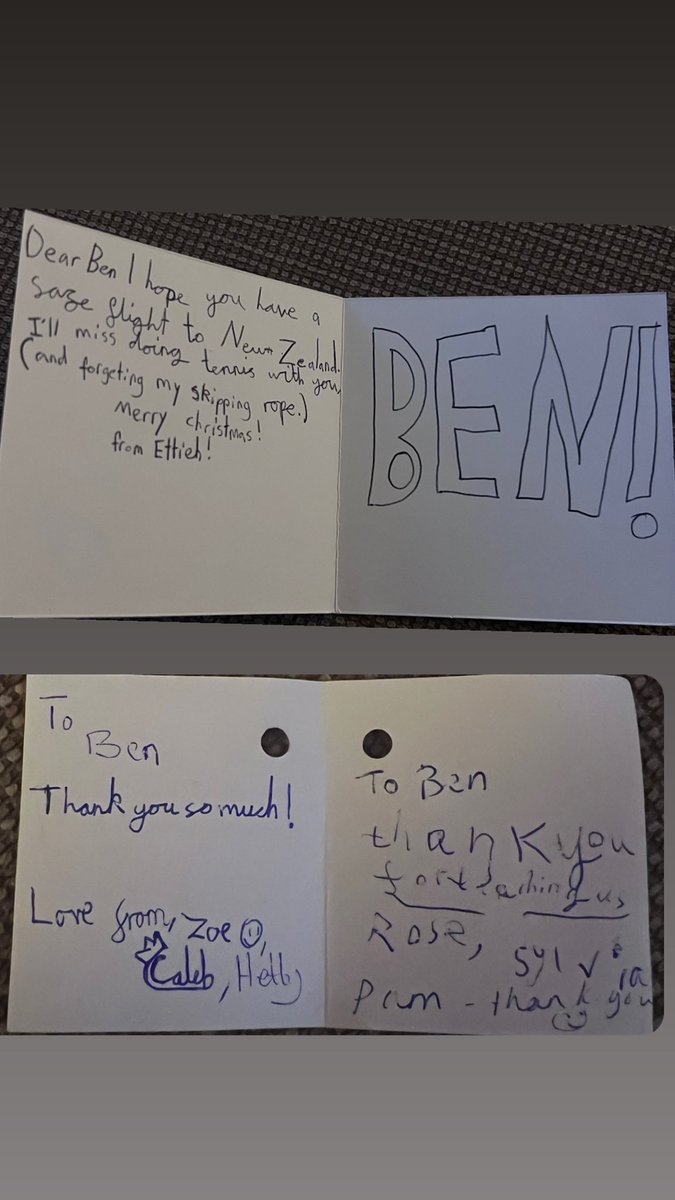 Dear Ben I hope you have a
saze flight to New Zealand.
I'll miss doing tennis with you,
(and forgeting my skipping rope.)
Merry christmas!
from Ettieh!
BEN!
To
Ben
Thank you so much!
Love from, Zoe
Caleb, Hetty
To Ben
thank you
for teaching us
Rose, Sylvia
Pam - thank you